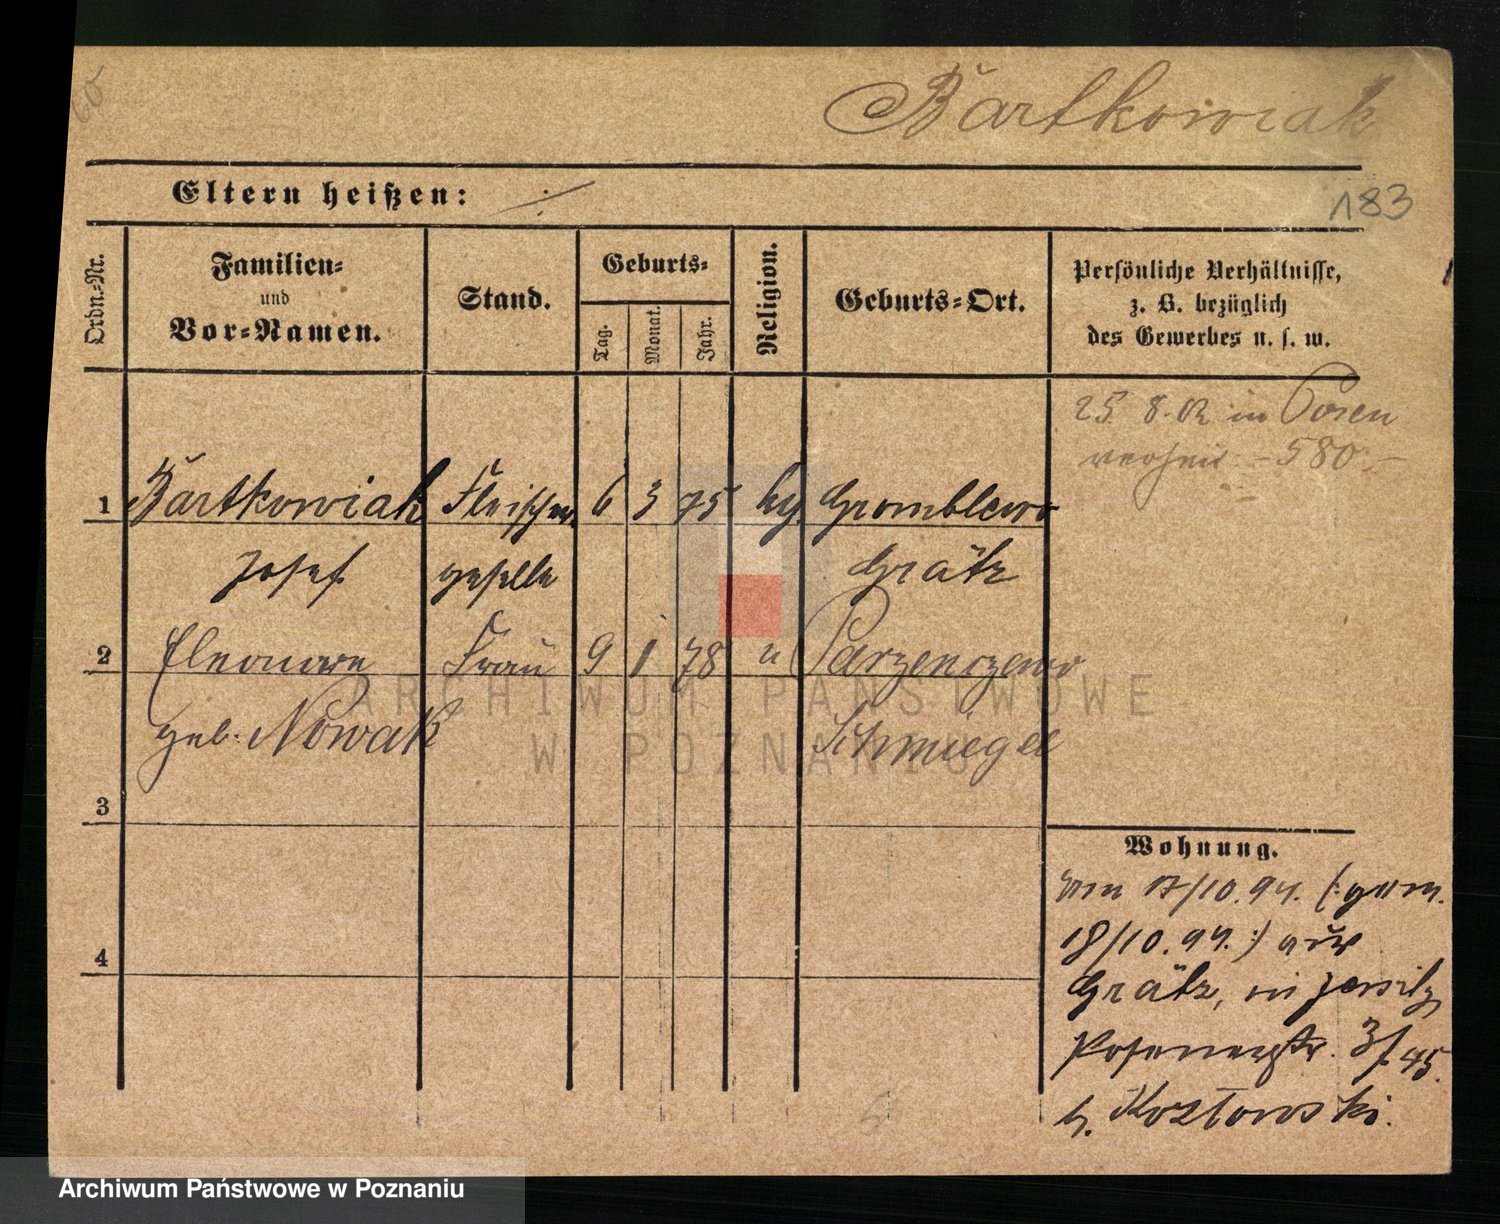 Bartkowiak
Eltern heißen: ./.
183
Ordn.-Nr.
Familien-
und
Vor-Namen.
Stand.
Geburts-
Tag.
Monat.
Jahr.
Religion.
Geburts-Ort.
Persönliche Verhältnisse,
z. B. bezüglich
des Gewerbes u. s. w.
25. 8. 02 in Posen
verheir. - 580 -
1 Bartkowiak Fleischer 6 3 75 kg. Gromblewo
Josef geselle Grätz
2 Eleonore Frau 9 1 78 " Parzenczewo
geb. Nowak Schmiegel
3
4
Wohnung.
Vom 17/10. 94. (: gem.
18/10. 94. :) aus
Grätz, in Jersitz,
Posenerstr. 45.
b. Kozlowski.
ARCHIWUM PAŃSTWOWE
W POZNANIU
Archiwum Państwowe w Poznaniu